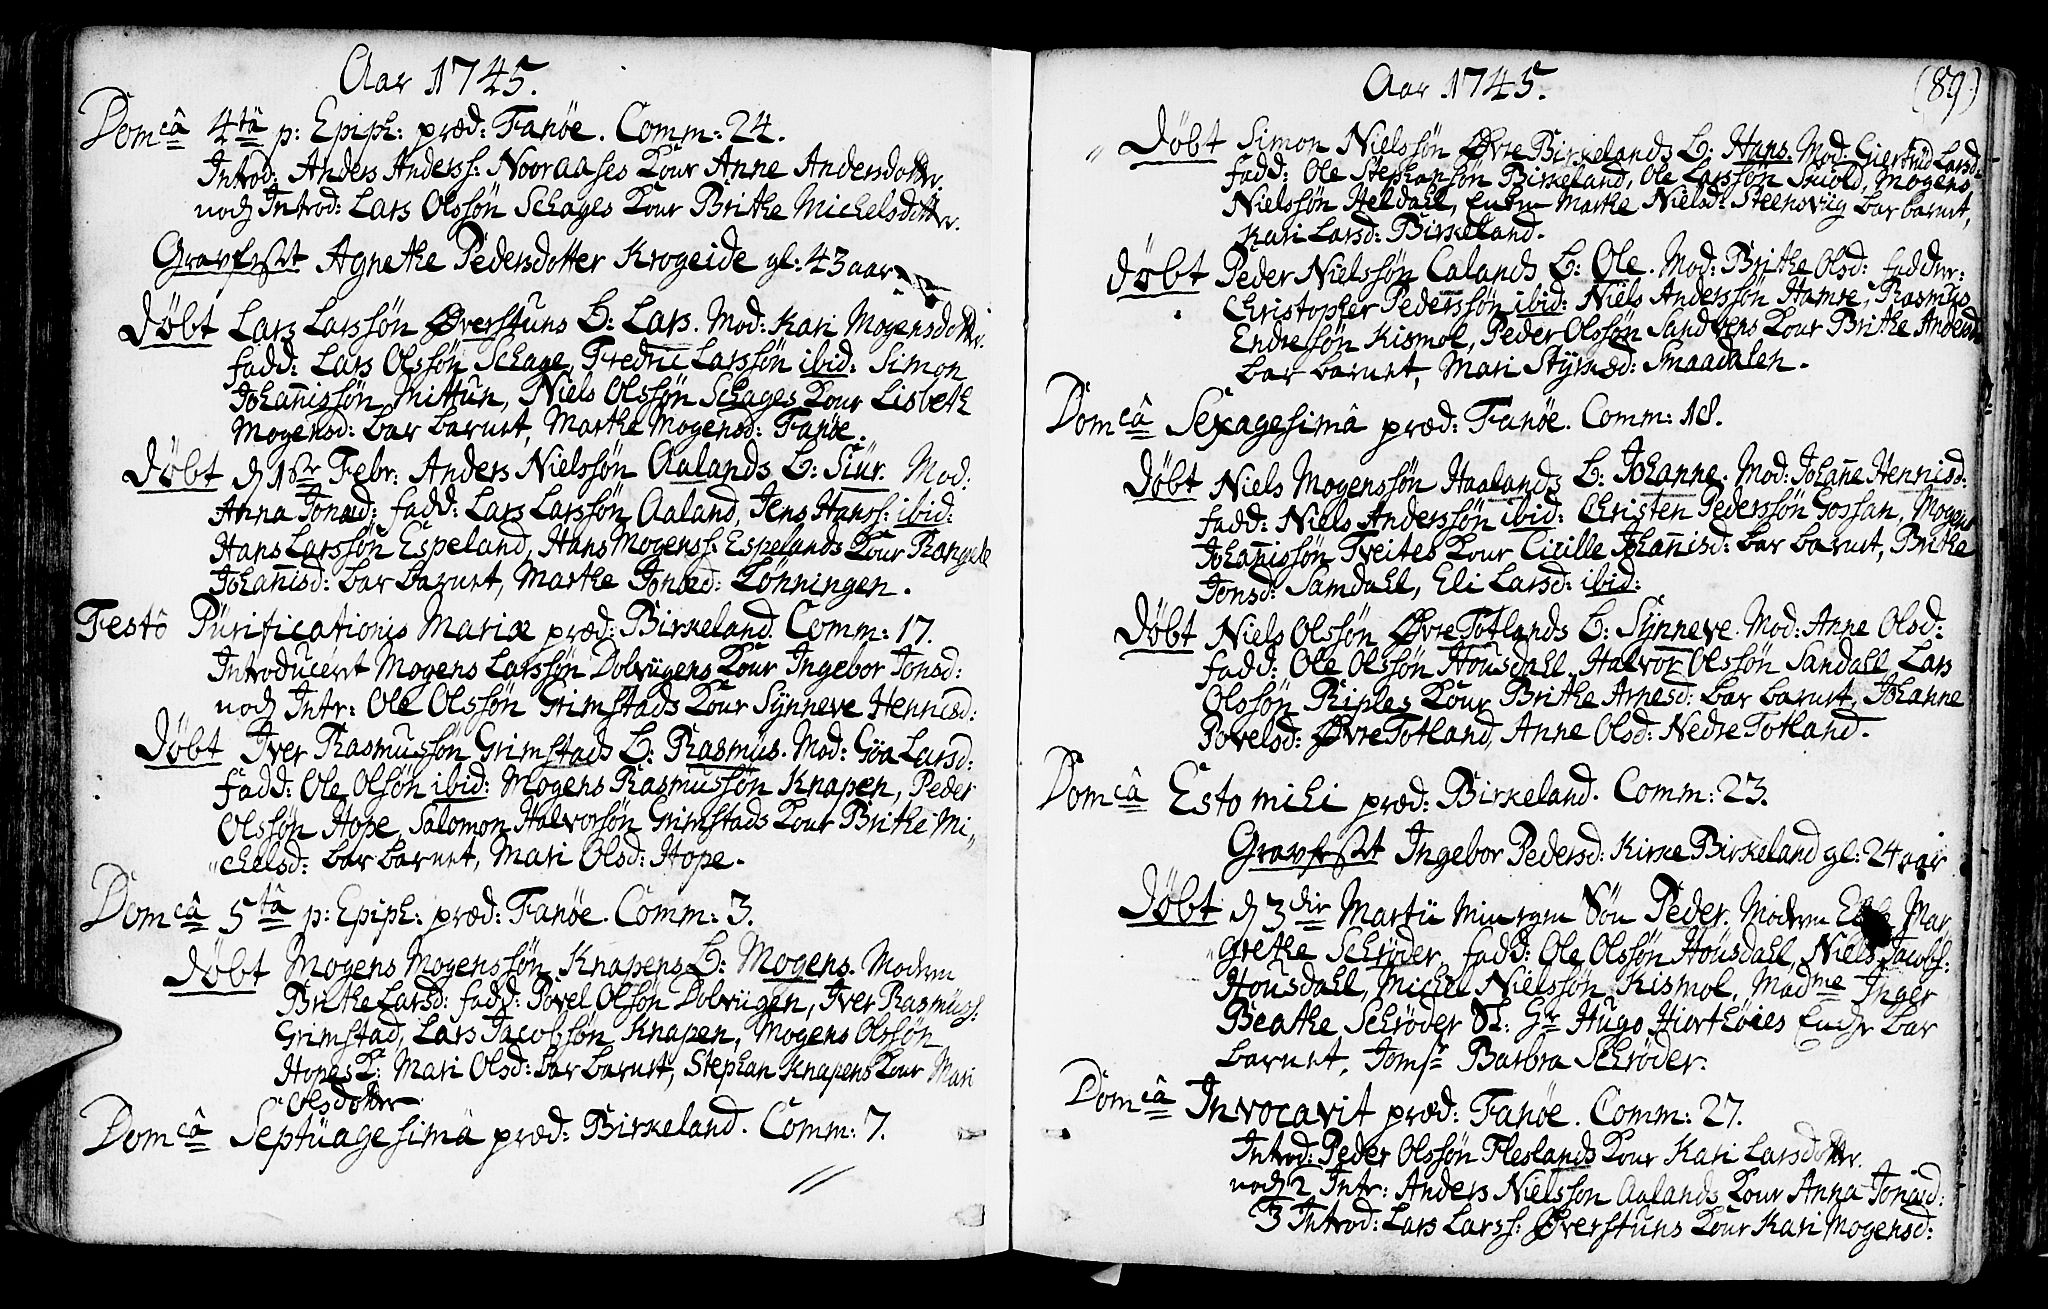 Aar 1745.
Dom câ 4tâ p: Epiph: præd: Fanöe. Comm: 24.
Introd: Anders Anderss: Nooraases Kone Anne Andersdotter.
noch Introd: Lars Olssön Schages Kone Brithe Michelsdotter.
Gravfæstet Agnethe Pedersdotter Krogeide gl: 43 aar
Döbt Lars Larssön Øverstuns B: Lars. Mod: Kari Mogensdotter.
fadd: Lars Olssön Schage, Fredric Larssön ibid: Simon
Johan̄issön Mittun, Niels Olssön Schages Kone Lisbeth
Mogensd: bar barnet, Marthe Mogensd: Fanöe.
Döbt d 1ste Febr: Anders Nielssön Aalands B: Siur. Mod:
Anna Jonæd: fadd: Lars Larssön Aaland, Jens Hanss: ibid:
Hans Larssön Espeland, Hans Mogenss: Espelands Kone Rangele
Johan̄isd: bar barnet, Marthe Jonæd: Lönningen.
Festô Purificationis Mariæ præd: Birkeland. Comm: 17.
Introduceret Mogens Larssön Dolvigens Kone Ingebor Jonsd:
noch Intr: Ole Olssön Grimstads Kone Synneve Hennisd:
Döbt Iver Rasmussön Grimstads B: Rasmus. Mod: Göa Larsd:
fadd: Ole Olsön ibid: Mogens Rasmussön Knapen, Peder
Olssön Hope, Salomon Halvorsön Grimstads Kone Brithe Mi„
„chelsd: bar barnet, Mari Olsd: Hope.
Dom câ 5tâ p: Epiph: præd: Fanöe. Comm: 3.
Döbt Mogens Mogenssön Knapens B: Mogens. Modren
Brithe Larsd: fadd: Povel Olssön Dolvigen, Iver Rasmuss:
Grimstad, Lars Jacobsön Knapen, Mogens Olssön
Hopes K: Mari Olsd: bar barnet, Stephan Knapens Kone Mari
Olsdotter
Dom câ Septuagesimâ præd: Birkeland. Comm: 7.
Aar 1745. (89)
Döbt Simon Nielssön Øvre Birkelands B: Hans. Mod: Giertrud Larsd:
fadd: Ole Stephansön Birkeland, Ole Larssön Skiold, Mogens
Nielssön Heldahl, Marthe Nielsd: Steensvig bar barnet,
Kari Larsd: Birkeland.
Döbt Peder Nielssön Calands B: Ole. Mod: Brithe Olsd: fadder:
Christopher Pederssön ibid: Niels Anderssön Hamre, Rasmus
Endressön Kismol, Peder Olssön Sandvens Kone Brithe Andersd:
bar barnet, Mari Styrkæd: Smaadalen.
Dom câ Sexagesimâ præd: Fanöe. Comm: 18.
Döbt Niels Mogenssön Haalands B: Johanne. Mod: Johan̄e Hennisd:
fadd: Niels Anderssön ibid: Christen Pederssön Gossan, Mogens
Johan̄issön Tveites Kone Cicille Johan̄isd: bar barnet, Brithe
Jonsd: Samdahl, Eli Larsd: ibid:
Döbt Niels Olssön Øvre Totlands B: Synneve. Mod: Anne Olsd:
fadd: Ole Olssön Housdahl, Halvor Olssön Sandahl, Lars
Olssön Riples Kone Brithe Arnesd: bar barnet, Johanne
Povelsd: Øvre Totland, Anne Olsd: Nedre Totland.
Dom câ Esto mihi præd: Birkeland. Comm: 23.
Gravfæstet Ingebor Pedersd: Kirke Birkeland gl: 24 aar
Döbt d 3die Martii min egen Sön Peder. Modren Mar„
„grethe Schröder, fadd: Ole Olssön Housdahl, Niels Jacobs:
Housdahl, Michel Nielssön Kismol, Madme Inger
Beathe Schröder Sl: Hr Hugo Hiorthöies Enche bar
barnet, Jomfr Barbra Schröder.
Dom câ Invocavit præd: Fanöe. Comm: 27.
Introd: Peder Olssön Fleslands Kone Kari Larsdotter.
noch 2 Intr: Anders Nielssön Aalands Kone Anna Jonæd:
3 Introd: Lars Larss: Øverstuns Kone Kari Mogensd: